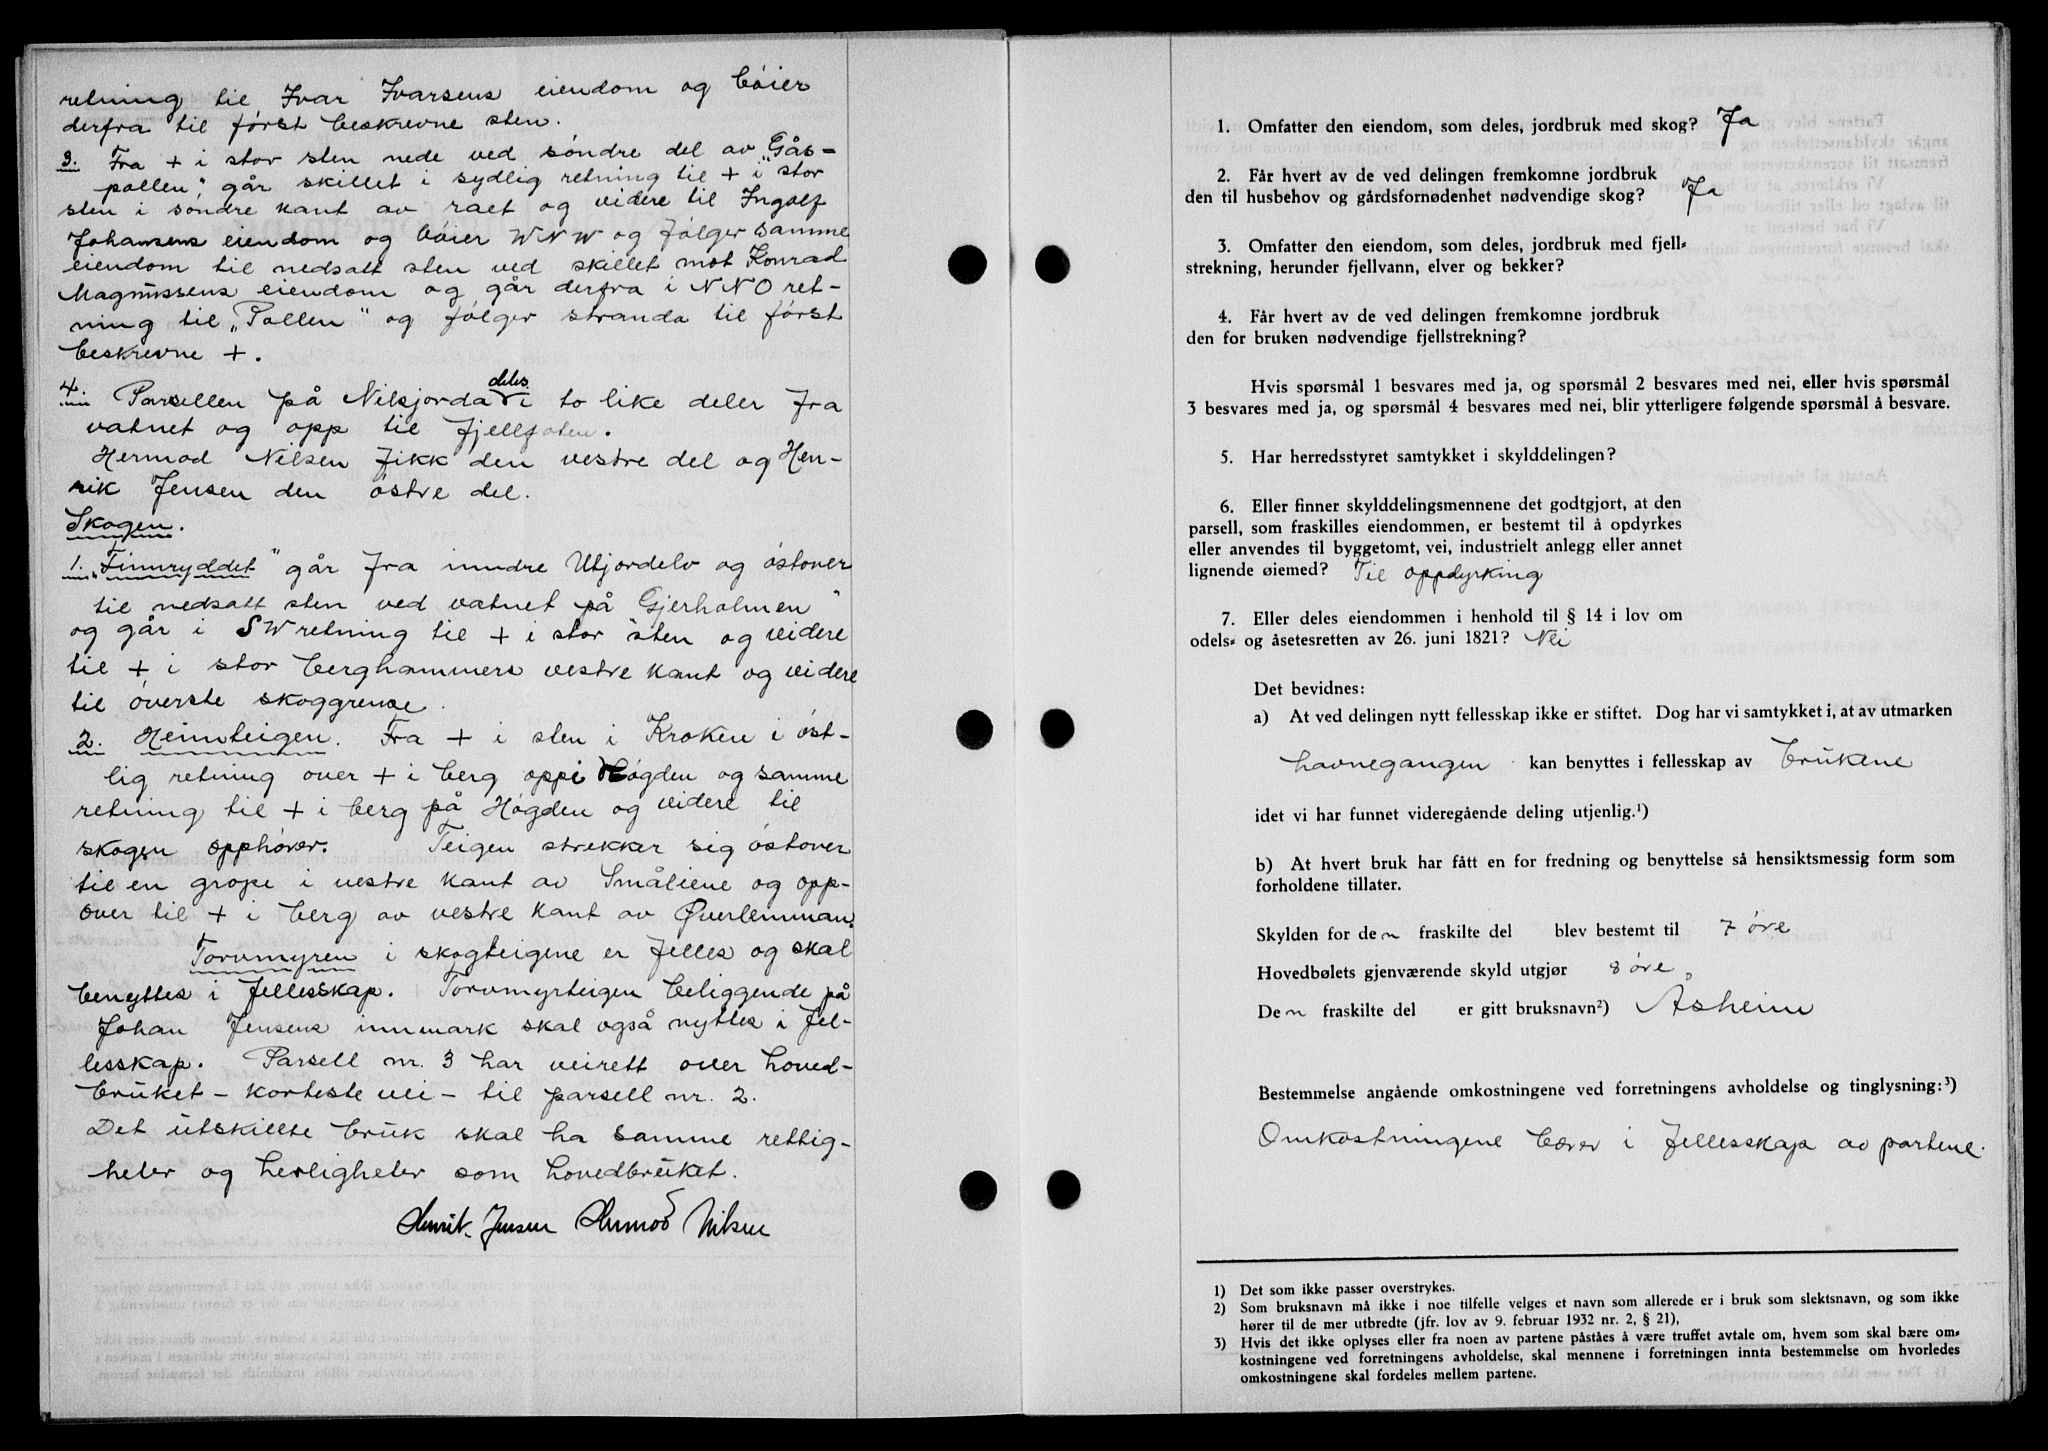 retning til Ivar Ivarsens eiendom og bøier
derfra til først beskrevne sten.
3. Fra + i stor sten nede ved søndre del av "Gås-
pollen", går skillet i sydlig retning til + i stor
sten i søndre kant av raet og videre til Ingolf
Johansens eiendom og bøier WNW og følger samme
eiendom til nedsatt sten ved skillet mot Konrad
Magnussens eiendom og går derfra i NNO ret-
ning til "Pollen" og følger stranda til først
beskrevne +.
4. Parsellen på Nilsjorda deles i to like deler fra
vatnet og opp til fjellfoten.
Hermod Nilsen fikk den vestre del og Hen-
rik Jensen den østre del.
Skogen.
1. "Finnryddet" går fra inndre Utjordelv og østover
til nedsatt sten ved vatnet på Gjerholmen"
og går i SW retning til + i stor sten og videre
til + i stor berghammers vestre kant og videre
til øverste skoggrense.
2. Heimteigen. Fra + i sten i Kroken i øst-
lig retning over + i berg oppi Høgden og samme
retning til + i berg på Høgden og videre til
skogen opphører. Teigen strekker sig østover
til en grope i vestre kant av Småliene og opp-
over til + i berg av vestre kant av Øverlemman.
Torvmyren i skogteigene er felles og skal
benyttes i fellesskap. Torvmyrteigen beliggende på
Johan Jensens innmark skal også nyttes i fel-
lesskap. Parsell nr. 3 har veirett over hoved-
bruket – korteste vei – til parsell nr. 2.
Det utskillte bruk skal ha samme rettig-
heter og herligheter som hovedbruket.
Henrik Jensen Hermod Nilsen
1. Omfatter den eiendom, som deles, jordbruk med skog? Ja
2. Får hvert av de ved delingen fremkomne jordbruk
den til husbehov og gårdsfornødenhet nødvendige skog? Ja
3. Omfatter den eiendom, som deles, jordbruk med fjell-
strekning, herunder fjellvann, elver og bekker?
4. Får hvert av de ved delingen fremkomne jordbruk
den for bruken nødvendige fjellstrekning?
Hvis spørsmål 1 besvares med ja, og spørsmål 2 besvares med nei, eller hvis spørsmål
3 besvares med ja, og spørsmål 4 besvares med nei, blir ytterligere følgende spørsmål å besvare.
5. Har herredsstyret samtykket i skylddelingen?
6. Eller finner skylddelingsmennene det godtgjort, at den
parsell, som fraskilles eiendommen, er bestemt til å opdyrkes
eller anvendes til byggetomt, vei, industrielt anlegg eller annet
lignende øiemed? Til oppdyrking
7. Eller deles eiendommen i henhold til § 14 i lov om
odels- og åsetesretten av 26. juni 1821? Nei
Det bevidnes:
a) At ved delingen nytt fellesskap ikke er stiftet. Dog har vi samtykket i, at av utmarken
havnegangen kan benyttes i fellesskap av brukene
idet vi har funnet videregående deling utjenlig.¹)
b) At hvert bruk har fått en for fredning og benyttelse så hensiktsmessig form som
forholdene tillater.
Skylden for den fraskilte del blev bestemt til 7 øre
Hovedbølets gjenværende skyld utgjør 8 øre.
Den fraskilte del er gitt bruksnavn²) Åsheim
Bestemmelse angående omkostningene ved forretningens avholdelse og tinglysning:³)
Omkostningene bærer i fellesskap av partene.
1) Det som ikke passer overstrykes.
2) Som bruksnavn må ikke i noe tilfelle velges et navn som allerede er i bruk som slektsnavn, og som ikke
hører til de mer utbredte (jfr. lov av 9. februar 1932 nr. 2, § 21),
3) Hvis det ikke oplyses eller fra noen av partene påståes å være truffet avtale om, hvem som skal bære om-
kostningene ved forretningens avholdelse, skal mennene i forretningen innta bestemmelse om hvorledes
omkostningene skal fordeles mellem partene.